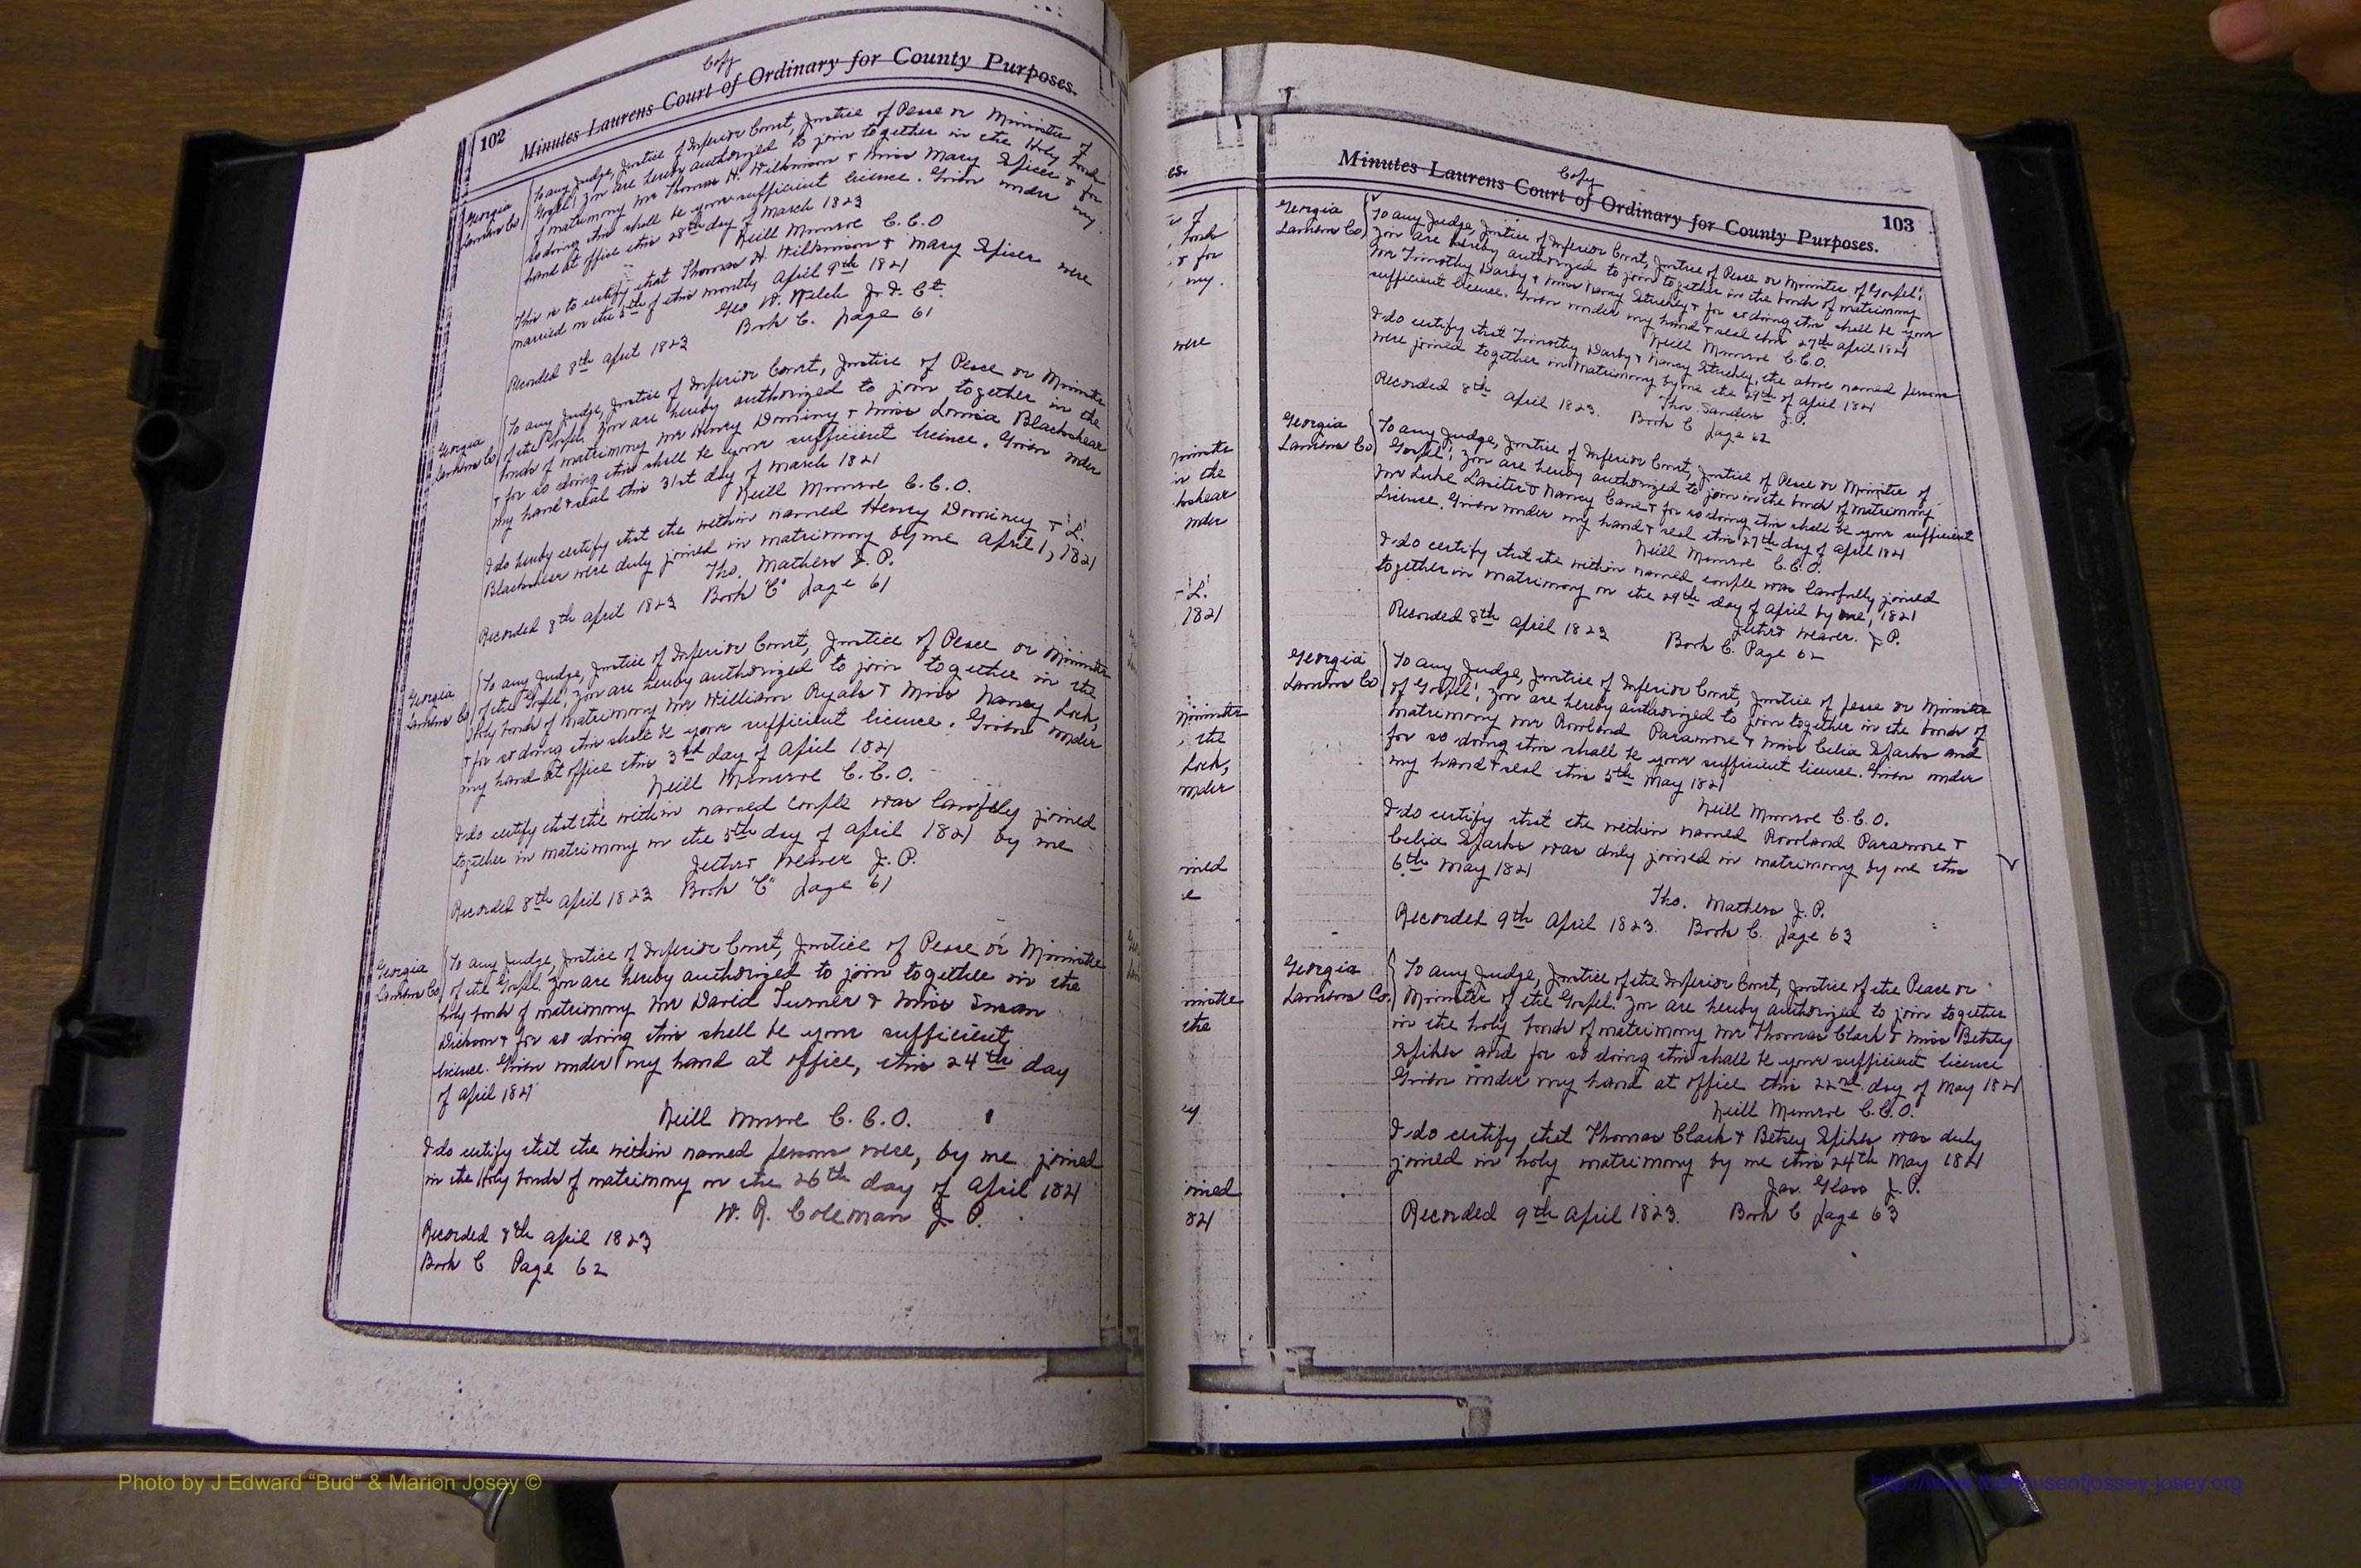 Copy
102 Minutes Laurens Court of Ordinary for County Purposes.
Georgia
Laurens Co
To any Judge, Justice of Inferior Court, Justice of Peace or Minister of
Gospel! You are hereby authorized to join together in the Holy bonds
of matrimony Mr Thomas H. Wilkinson & Miss Mary Spicer & for
so doing this shall be your sufficient licence. Given under my
hand at office this 28th day of March 1823
Neill Munroe C.C.O
This is to certify that Thomas H. Wilkinson & Mary Spicer were
married on the 5th of this month April 9th 1821
Geo W. Welch J. I. Ct.
Recorded 8th April 1823 Book C. page 61
Georgia
Laurens Co
To any Judge, Justice of Inferior Court, Justice of Peace or Minister
of the Gospel. You are hereby authorized to join together in the
bonds of matrimony Mr Henry Dominy & Miss Louisa Blackshear
& for so doing this shall be your sufficient licence. Given under
my hand & seal this 31st day of March 1821
Neill Munroe C.C.O.
I do hereby certify that the within named Henry Dominey & L.
Blackshear were duly joined in matrimony by me April 1, 1821
Tho. Mathews J. P.
Recorded 8th April 1823 Book "C" page 61
Georgia
Laurens Co
To any Judge, Justice of Inferior Court, Justice of Peace or Minister
of the Gospel! You are hereby authorized to join together in the
Holy bonds of matrimony Mr William Ryals & Miss Nancy Lock,
& for so doing this shall be your sufficient licence. Given under
my hand at office this 3rd day of April 1821
Neill Munroe C.C.O.
I do certify that the within named couple was lawfully joined
together in matrimony on the 5th day of April 1821 by me
Jethro Weaver J. P.
Recorded 8th April 1823 Book "C" page 61
Georgia
Laurens Co
To any Judge, Justice of Inferior Court, Justice of Peace or Minister
of the Gospel. You are hereby authorized to join together in the
holy bonds of matrimony Mr David Turner & Miss Susan
Dickson & for so doing this shall be your sufficient
licence. Given under my hand at office, this 24th day
of April 1821
Neill Munroe C.C.O.
I do certify that the within named persons were, by me joined
in the Holy bonds of matrimony on the 26th day of April 1821
W. R. Coleman J. P.
Recorded 8th April 1823
Book C Page 62
Copy
Minutes Laurens Court of Ordinary for County Purposes. 103
Georgia
Laurens Co
To any Judge, Justice of Inferior Court, Justice of Peace or Minister of Gospel!
You are hereby authorized to join together in the bonds of matrimony
Mr Timothy Darby & Miss Nancy Stuchly & for so doing this shall be your
sufficient licence. Given under my hand & seal this 27th April 1821
Neill Munroe C.C.O.
I do certify that Timothy Darby & Nancy Stuchly, the above named persons
were joined together in matrimony by me the 29th of April 1821
Tho. Sanders J.P.
Recorded 8th April 1823. Book C page 62
Georgia
Laurens Co
To any Judge, Justice of Inferior Court, Justice of Peace or Minister of
Gospel! You are hereby authorized to join in the bonds of matrimony
Mr Luke Lasiter & Nancy Cane & for so doing this shall be your sufficient
Licence. Given under my hand & seal this 27th day of April 1821
Neill Munroe C.C.O.
I do certify that the within named couple was lawfully joined
together in matrimony on the 29th day of April by me, 1821
Jethro Weaver. J.P.
Recorded 8th April 1823 Book C. Page 62
Georgia
Laurens Co
To any Judge, Justice of Inferior Court, Justice of Peace or Minister
of Gospel! You are hereby authorized to join together in the bonds of
matrimony Mr Rowland Paramore & Miss Celia Sparks and
for so doing this shall be your sufficient licence. Given under
my hand & seal this 5th May 1821
Neill Munroe C.C.O.
I do certify that the within named Rowland Paramore &
Celia Sparks was duly joined in matrimony by me this
6th May 1821
Tho. Mathews J.P.
Recorded 9th April 1823. Book C. page 63
Georgia
Laurens Co.
To any Judge, Justice of the Inferior Court, Justice of the Peace or
Minister of the Gospel. You are hereby authorized to join together
in the holy bonds of matrimony Mr Thomas Clark & Miss Betsey
Spikes and for so doing this shall be your sufficient licence
Given under my hand at office this 22nd day of May 1821
Neill Munroe C.C.O.
I do certify that Thomas Clark & Betsey Spikes was duly
joined in holy matrimony by me this 24th May 1821
Jas. Glass J. P.
Recorded 9th April 1823. Book C page 63
Photo by J Edward “Bud” & Marion Josey ©
http://www.thehouseofjossey-josey.org